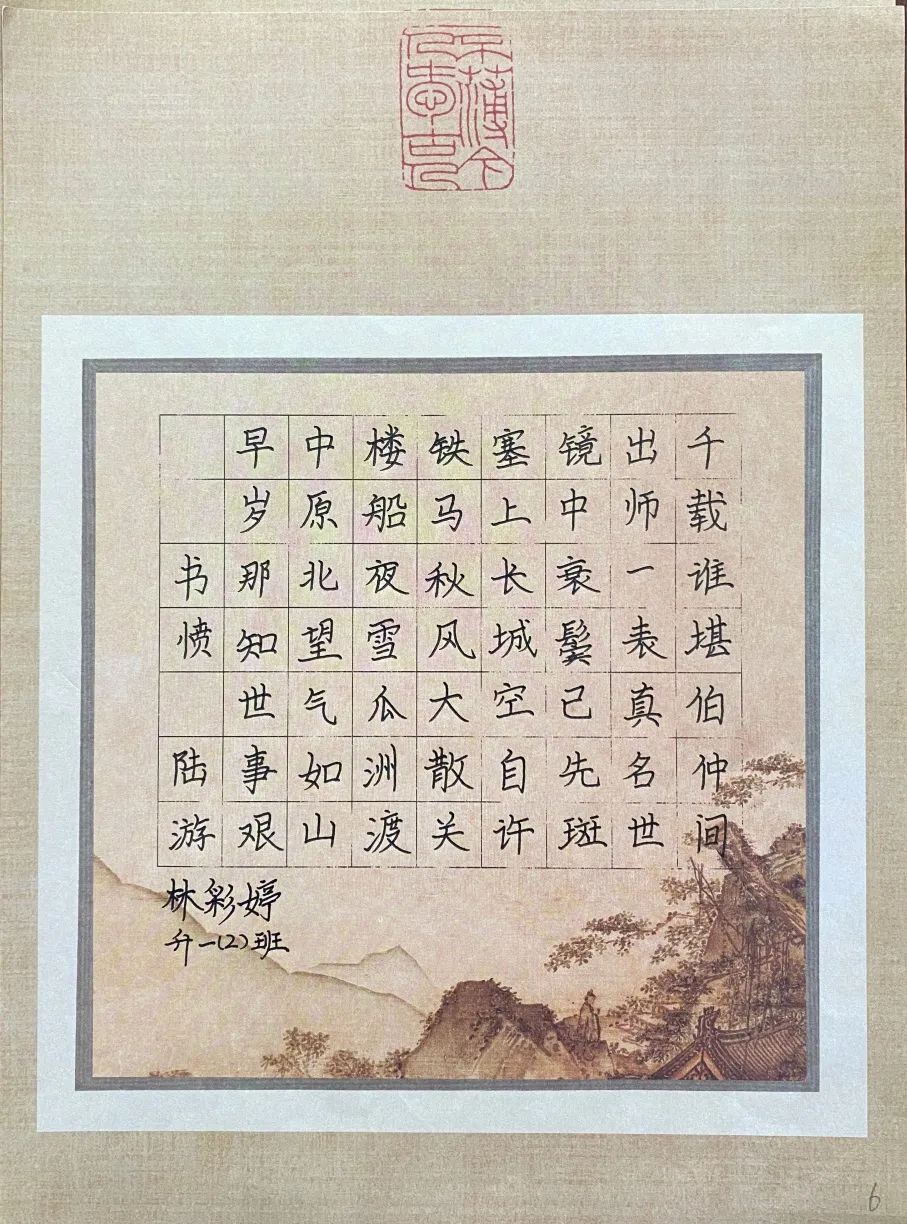 不薄今人爱古人
书愤 陆游
早岁那知世事艰
中原北望气如山
楼船夜雪瓜洲渡
铁马秋风大散关
塞上长城空自许
镜中衰鬓已先斑
出师一表真名世
千载谁堪伯仲间
林彩婷
升一(2)班
6